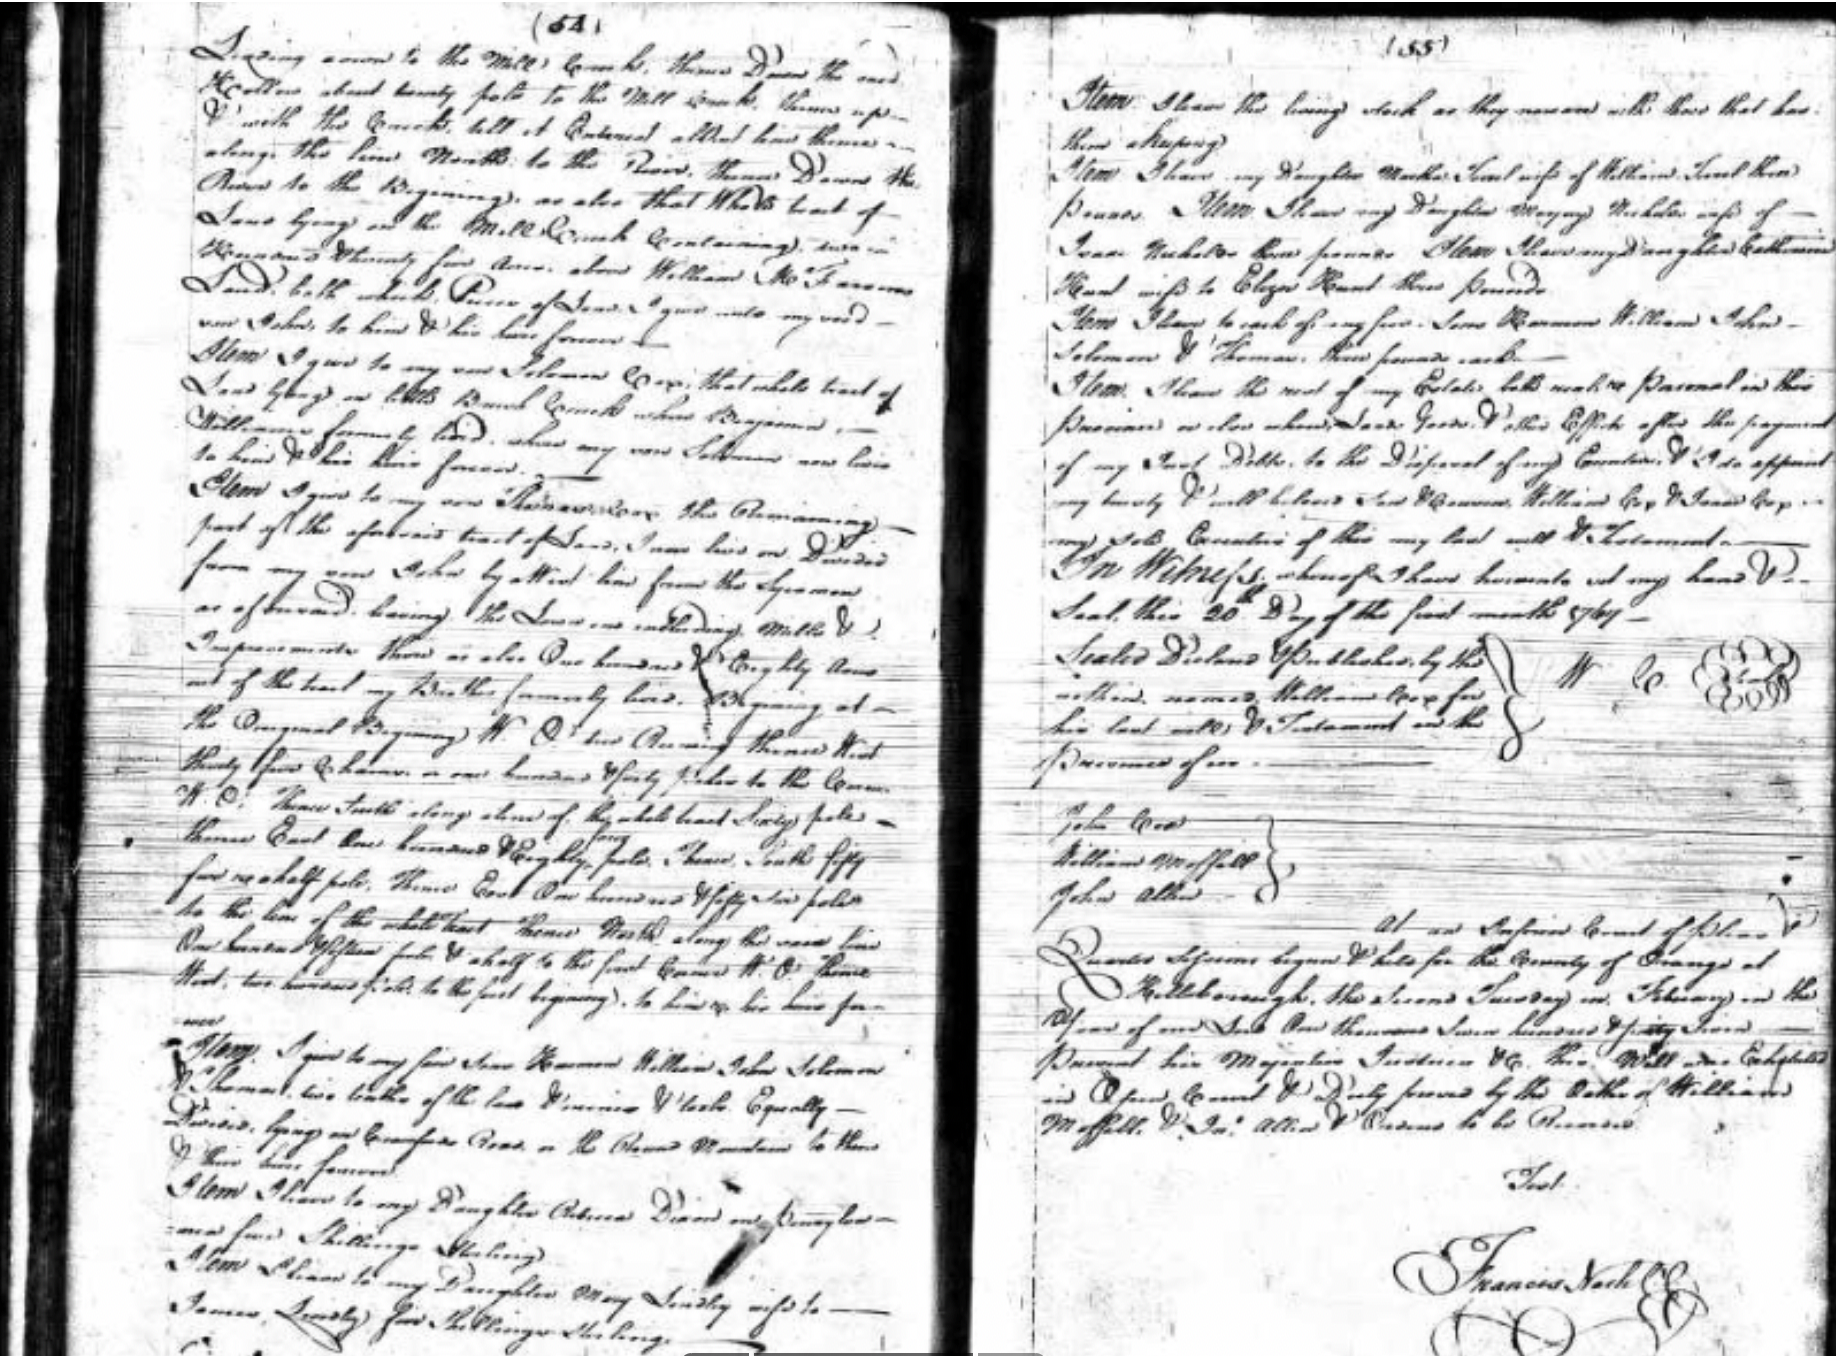 (54)
Leading down to the Mill Creek, thence Down the said
Hollow about twenty pole to the Mill Creek, thence up
& with the Creek, till it Entered allred line thence
along the line North to the River, thence Down the
River to the Begining, as also that Whole tract of
Land lying on the Mill Creek Containing, two
Hundred & twenty five Acres, above William Mc
Land, both which Pieces of Land, I give unto my said
son John, to him & his heirs forever
Item I give to my son Solomon Cox, that whole tract of
Land lying on little Brush Creek where Benjamin
Williams formerly lived, where my son Solomon now lives
to him & his heirs forever.
Item I give to my son Thomas Cox, the Remaining
part of the aforesaid tract of Land, I now live on Divided
from my son John by a West line from the Sycamore
as aforesaid, leaving the Lower end including Mills &
Improvements there as also One hundred & Eighty Acres
out of the tract my Brother formerly lived, Begining at
the Original Begining W. O. two Runing thence West
thirty five Chains or one hundred & forty poles to the Corner
W. O. Thence South along aline of the whole tract Sixty poles
thence East One hundred & Eighty four pole, Thence South fifty
five & a half pole, thence East One hundred & fifty six poles
to the line of the whole tract thence North along the said line
One hundred & fifteen pole & a half to the first Corner W. O. Thence
West, two hundred poles to the first begining, to him & his heirs for
-ever
Item. I give to my five Sons Harmon William John Solomon
& Thomas, two tenths of the land & mines & tools Equally
Divided, lying on Crawfords Road, on the Round Mountain to them
& their heirs forever
Item I leave to my Daughter Rebecca Dixon in Pensylva-
-nia five Shillings Sterling
Item I leave to my Daughter Mary Lindley wife to
James Lindley five Shillings Sterling.
(55)
Item. I leave the living stock as they now are with those that has
them a keeping
Item I leave my Daughter Martha wife of William three
Pounds. Item I leave my Daughter Margery Nicholas wife of
Isaac Nicholas three pounds Item I leave my Daughter Catherine
Hunt wife to Elizer Hunt three Pounds
Item I leave to each of my five Sons Harmon William John
Solomon & Thomas, three pounds each
Item. I leave the rest of my Estate both real & Personal in this
Province or else where, Lands Goods, & other Effects after the payment
of my Just Debts, to the Disposal of my Executors, & I do appoint
my trusty & well beloved Sons Harmon, William Cox & Isaac Cox
my sole Executors of this my last will & Testament
In Witness whereof I have hereunto set my hand &
Seal, this 20th Day of the first month 1767
Sealed Declared & Published, by the
within named William Cox for
his last will & Testament in the
Presence of us
W C Seal
John Cox
William Moffitt
John Allen
At an Inferior Court of Pleas &
Quarter Sessions begun & held for the County of Orange at
Hillsborough, the Second Tuesday in February in the
Year of our Lord One thousand Seven hundred & sixty Seven
Present his Majesties Justices &C. this Will was Exhibited
in Open Court & Duly proved by the Oaths of William
Moffitt & Jno. Allen & Ordered to be Recorded
Test
Francis Nash CC